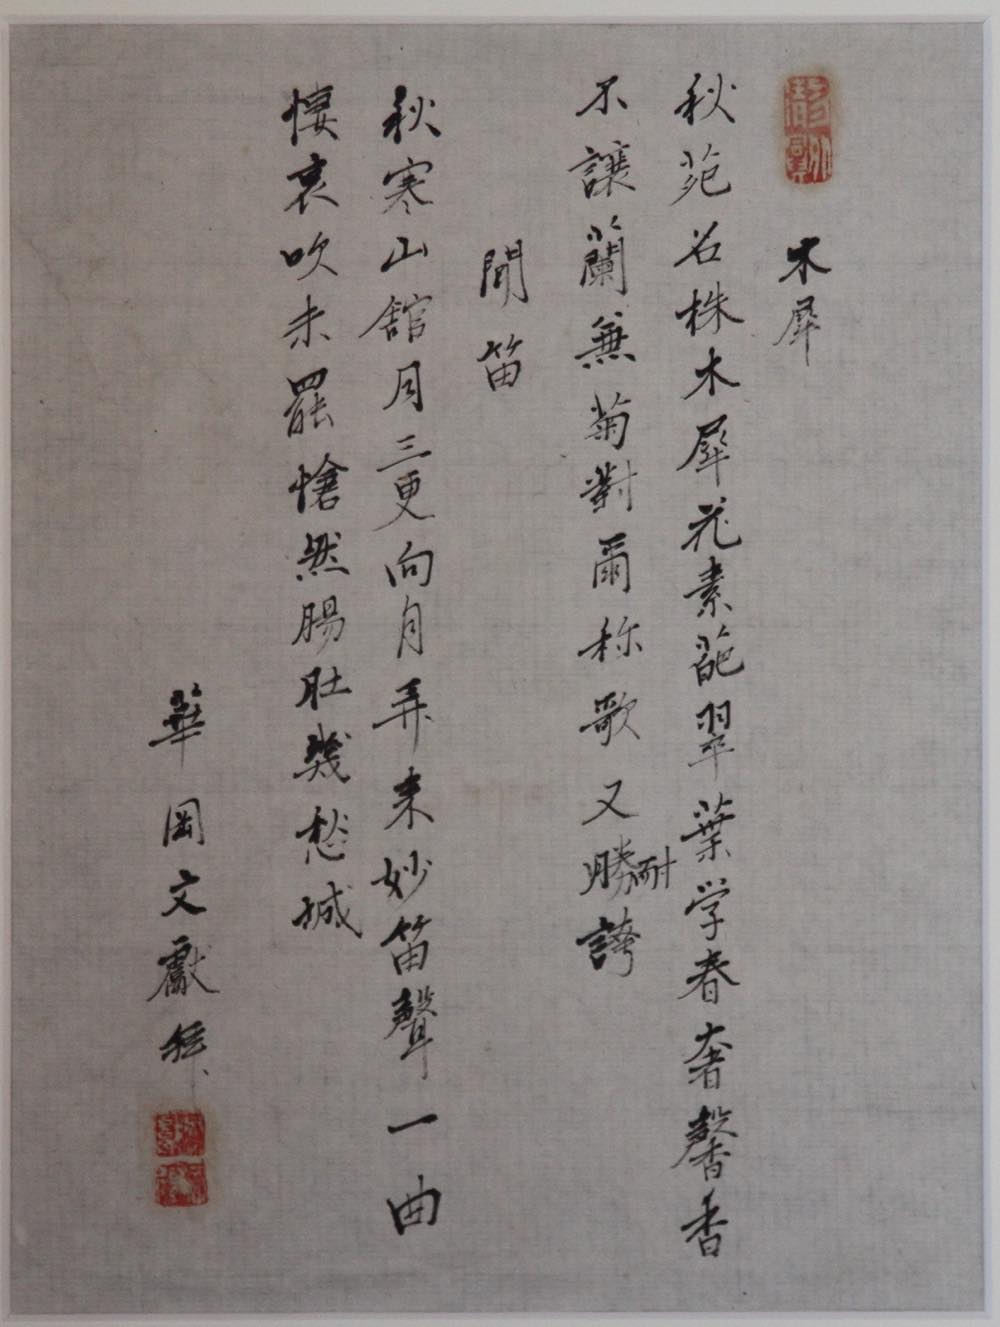 木犀
秋苑名株木犀花素葩翠葉学春奢馨香
不讓蘭無菊對爾称歌又勝誇
耐
聞笛
秋寒山舘月三更向月弄来妙笛聲一曲
悽哀吹未罷愴然腸肚幾愁城
華岡文獻拜